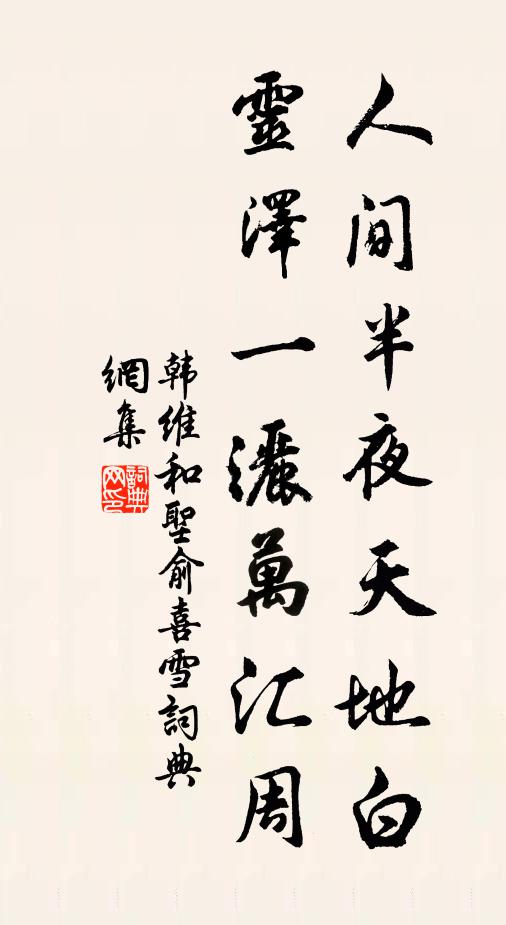 人间半夜天地白
靈澤一灑萬汇周
韩维和聖俞喜雪詞典
網集
詞典网印